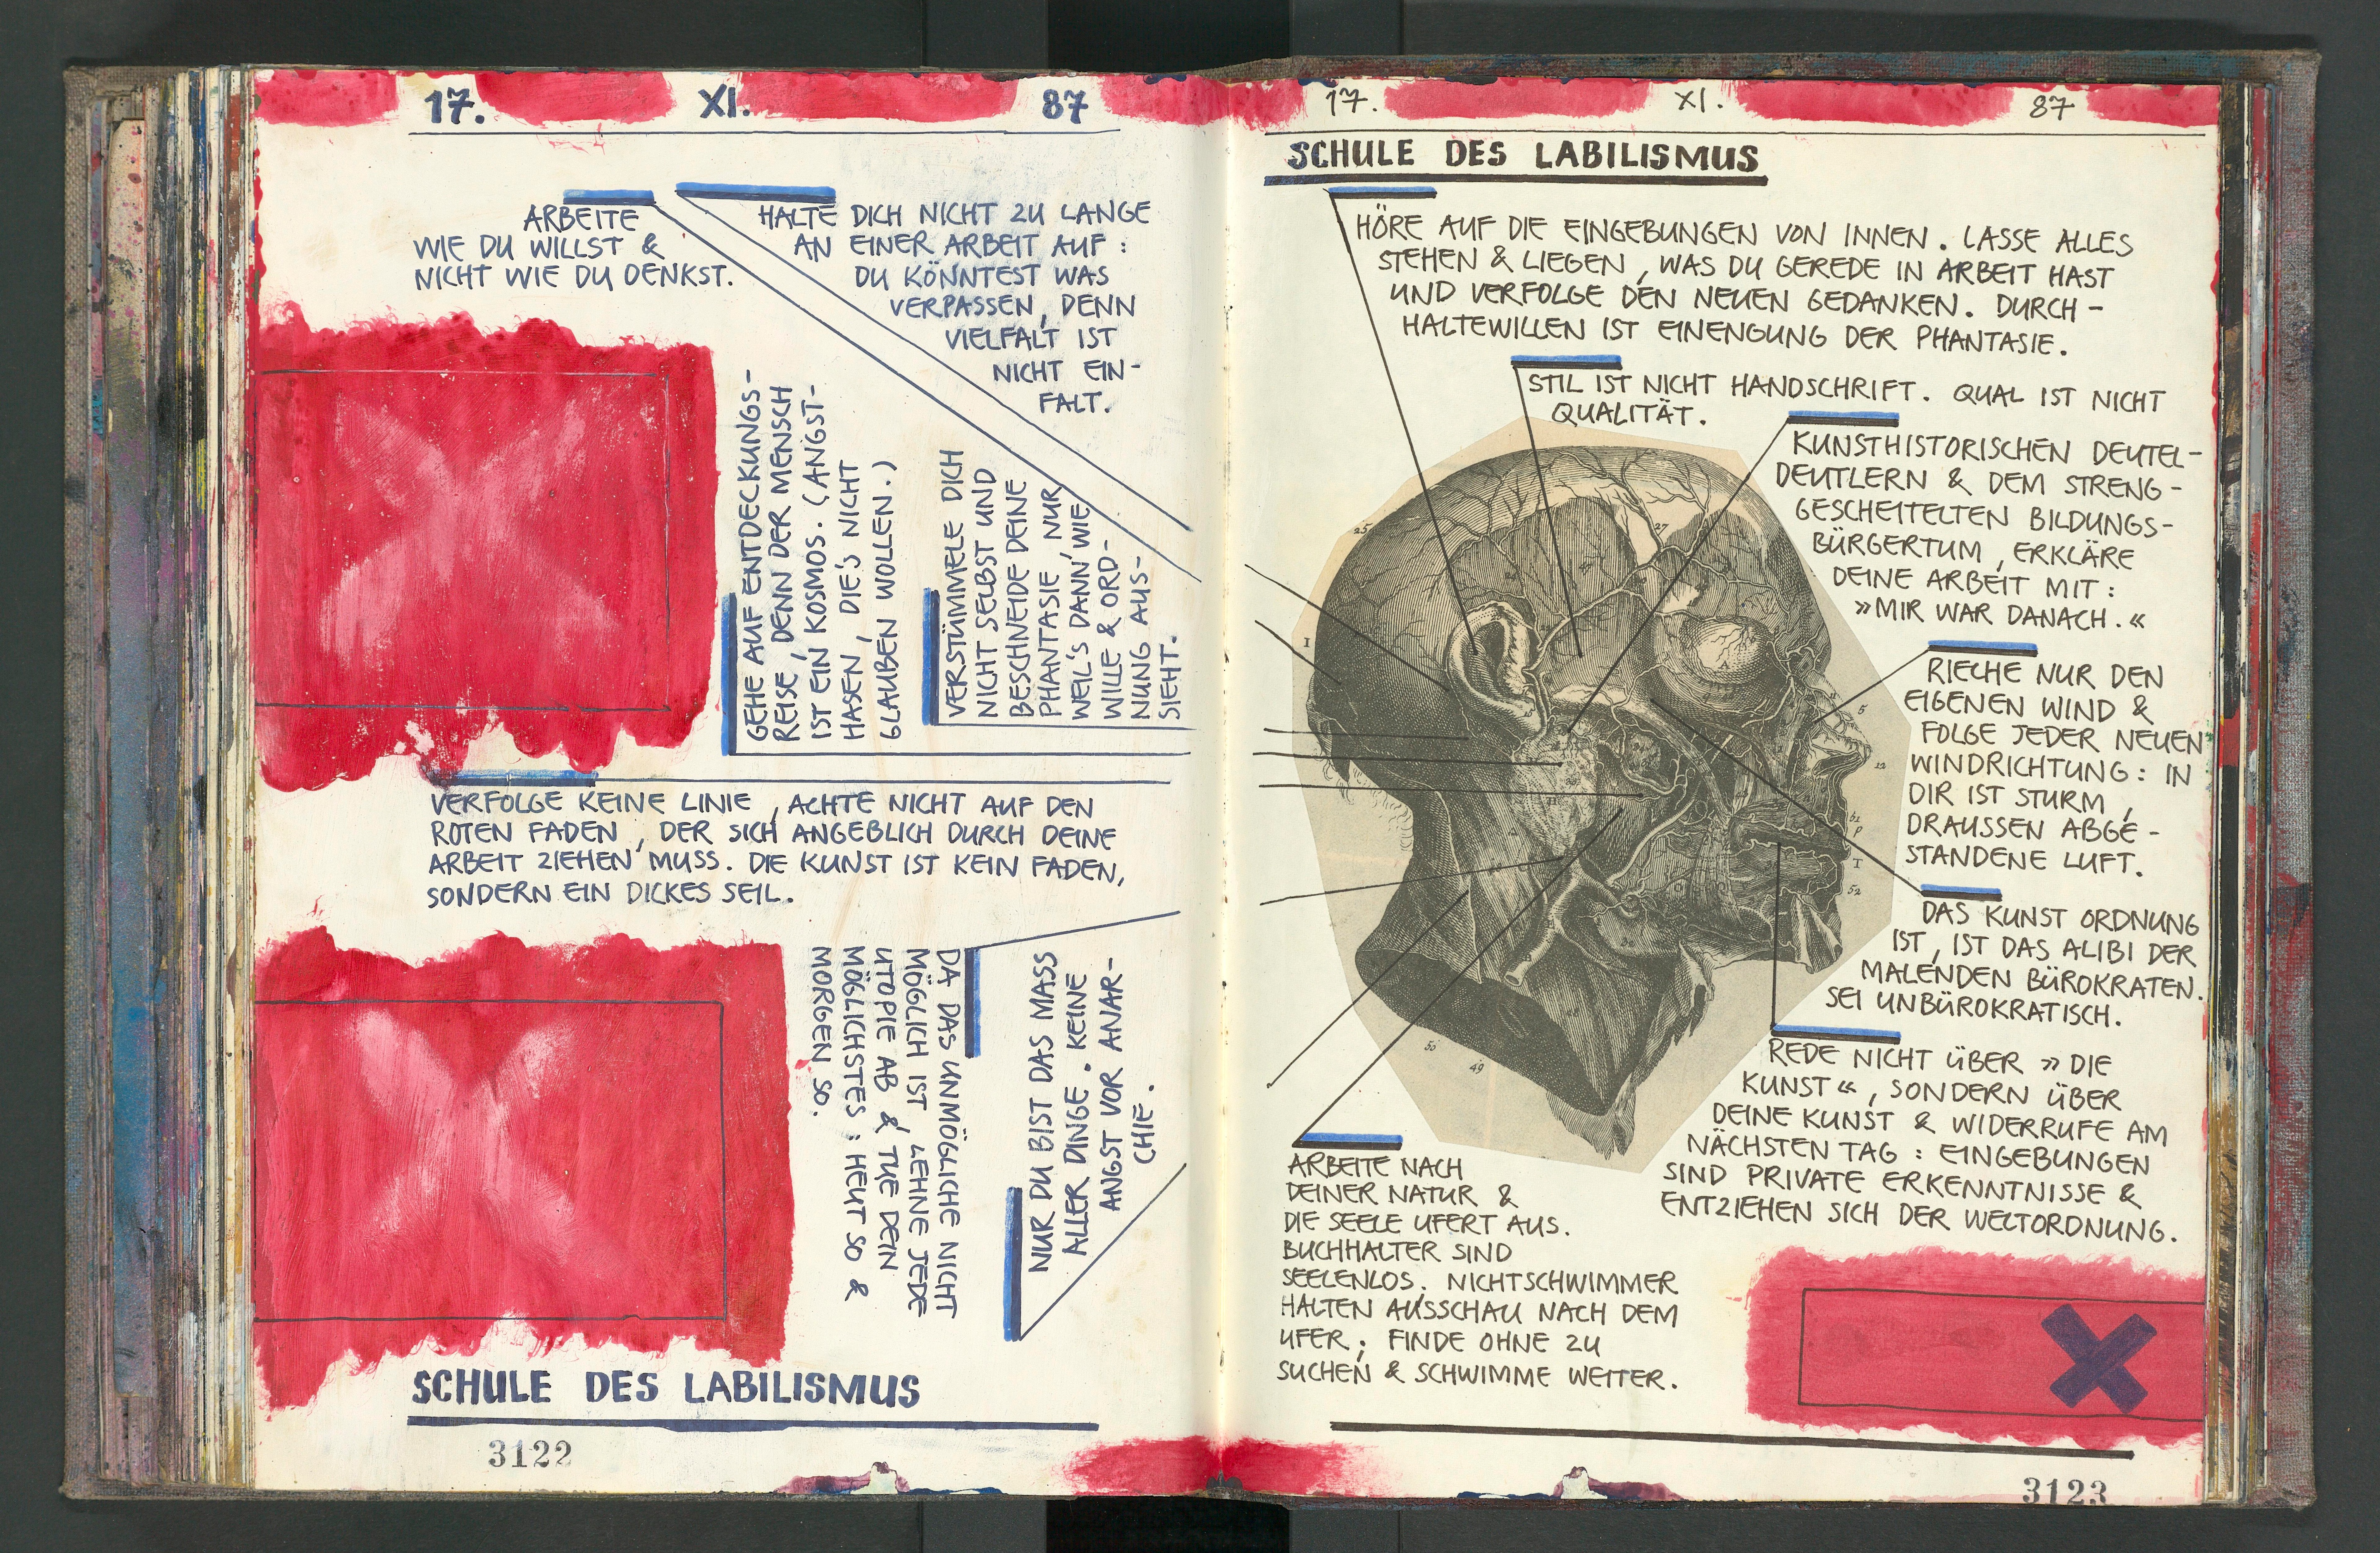 17. XI. 87
ARBEITE
WIE DU WILLST &
NICHT WIE DU DENKST.
HALTE DICH NICHT ZU LANGE
AN EINER ARBEIT AUF :
DU KÖNNTEST WAS
VERPASSEN, DENN
VIELFALT IST
NICHT EIN-
FALT.
GEHE AUF ENTDECKUNGS-
REISE, DENN DER MENSCH
IST EIN KOSMOS. (ANGST-
HASEN, DIE'S NICHT
GLAUBEN WOLLEN.)
VERSTÜMMELE DICH
NICHT SELBST UND
BESCHNEIDE DEINE
PHANTASIE, NUR
WEIL'S DANN WIE
WILLE & ORD-
NUNG AUS-
SIEHT.
VERFOLGE KEINE LINIE, ACHTE NICHT AUF DEN
ROTEN FADEN, DER SICH ANGEBLICH DURCH DEINE
ARBEIT ZIEHEN MUSS. DIE KUNST IST KEIN FADEN,
SONDERN EIN DICKES SEIL.
DA DAS UNMÖGLICHE NICHT
MÖGLICH IST, LEHNE JEDE
UTOPIE AB & TUE DEIN
MÖGLICHSTES : HEUT SO &
MORGEN SO.
NUR DU BIST DAS MASS
ALLER DINGE. KEINE
ANGST VOR ANAR-
CHIE.
SCHULE DES LABILISMUS
3122
17. XI. 87
SCHULE DES LABILISMUS
HÖRE AUF DIE EINGEBUNGEN VON INNEN. LASSE ALLES
STEHEN & LIEGEN, WAS DU GEREDE IN ARBEIT HAST
UND VERFOLGE DEN NEUEN GEDANKEN. DURCH-
HALTEWILLEN IST EINENGUNG DER PHANTASIE.
STIL IST NICHT HANDSCHRIFT. QUAL IST NICHT
QUALITÄT.
KUNSTHISTORISCHEN DEUTEL-
DEUTLERN & DEM STRENG-
GESCHEITELTEN BILDUNGS-
BÜRGERTUM, ERKLÄRE
DEINE ARBEIT MIT :
»MIR WAR DANACH.«
RIECHE NUR DEN
EIGENEN WIND &
FOLGE JEDER NEUEN
WINDRICHTUNG : IN
DIR IST STURM,
DRAUSSEN ABGE-
STANDENE LUFT.
DAS KUNST ORDNUNG
IST, IST DAS ALIBI DER
MALENDEN BÜROKRATEN.
SEI UNBÜROKRATISCH.
REDE NICHT ÜBER »DIE
KUNST«, SONDERN ÜBER
DEINE KUNST & WIDERRUFE AM
NÄCHSTEN TAG : EINGEBUNGEN
SIND PRIVATE ERKENNTNISSE &
ENTZIEHEN SICH DER WELTORDNUNG.
ARBEITE NACH
DEINER NATUR &
DIE SEELE UFERT AUS.
BUCHHALTER SIND
SEELENLOS. NICHTSCHWIMMER
HALTEN AUSSCHAU NACH DEM
UFER; FINDE OHNE ZU
SUCHEN & SCHWIMME WEITER.
25
27
I
5
12
I
52
50
49
3123